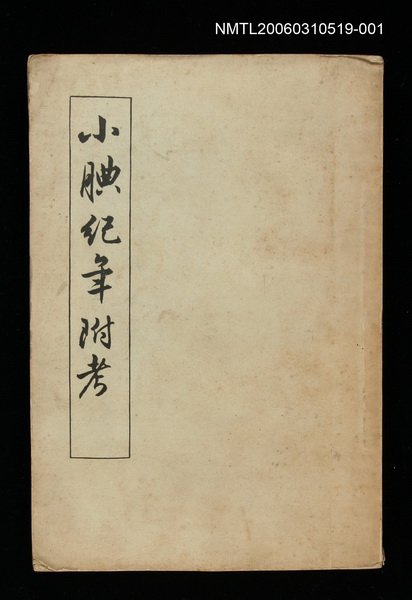 NMTL20060310519-001
小腆紀年附考